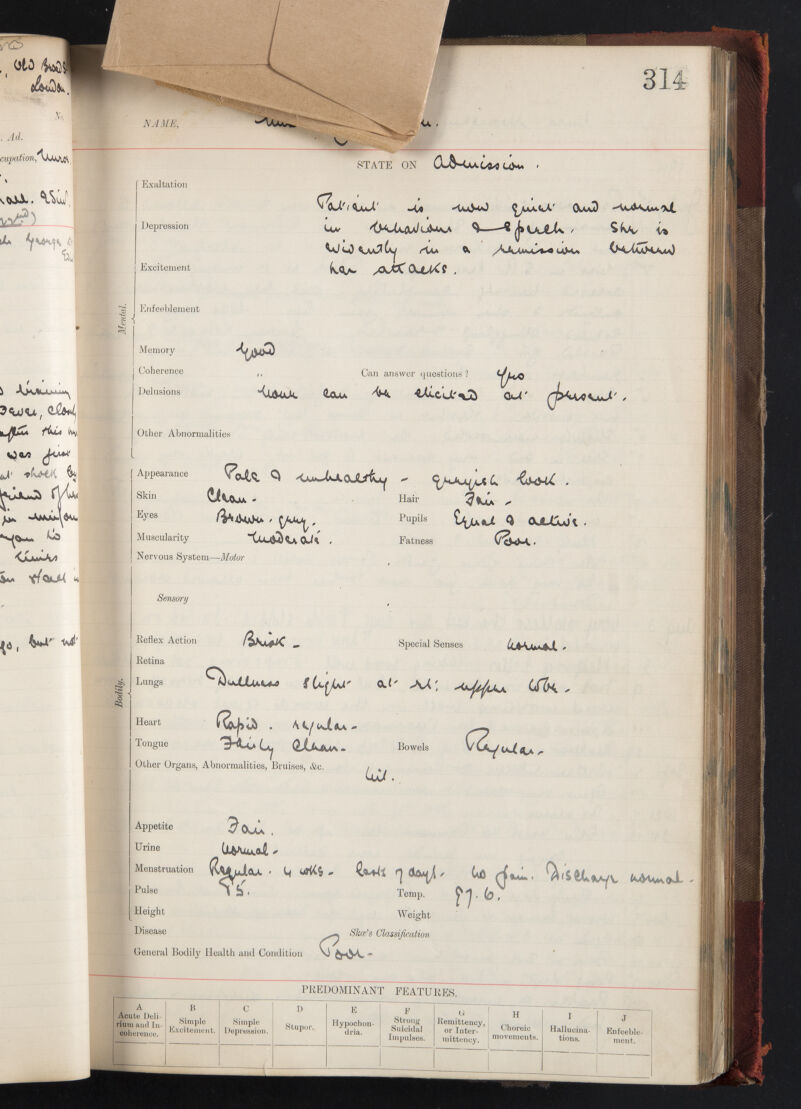 Old Broad St
London.
Ad.
cupation, Nurse
314
NAME,
STATE ON Admission.
Mental.
Exaltation
Patient is now quiet and normal
Depression
in behaviour & speech. She is
evidently in a remission between
Excitement
her attacks.
Enfeeblement
Memory Good
Coherence ,, Can answer questions? Yes
Delusions None can be elicited at present.
Other Abnormalities
Bodily.
Appearance Pale & unhealthy - greyish look.
Skin Clean - Hair Fair -
Eyes Brown. grey. Pupils Equal & active.
Muscularity Moderate. Fatness Poor.
Nervous System—Motor
Sensory
Reflex Action Brisk - Special Senses Normal.
Retina
Lungs Dullness slight at rt: upper lobe -
Heart Rapid. regular -
Tongue Fairly clean - Bowels Regular -
Other Organs, Abnormalities, Bruises, &c.
Nil.
Appetite Fair.
Urine Normal -
Menstruation Regular. 4 wks - lasts 7 days. No pain. Discharge normal -
Pulse 85. Temp. 97.6.
Height Weight
Disease Skæ's Classification
General Bodily Health and Condition Poor -
PREDOMINANT FEATURES.
A B C D E F G H I J
Acute Delirium and Incoherence. Simple Excitement. Simple Depression. Stupor. Hypochondria. Strong Suicidal Impulses. Remittency, or Intermittency. Choreic movements. Hallucinations. Enfeeblement.